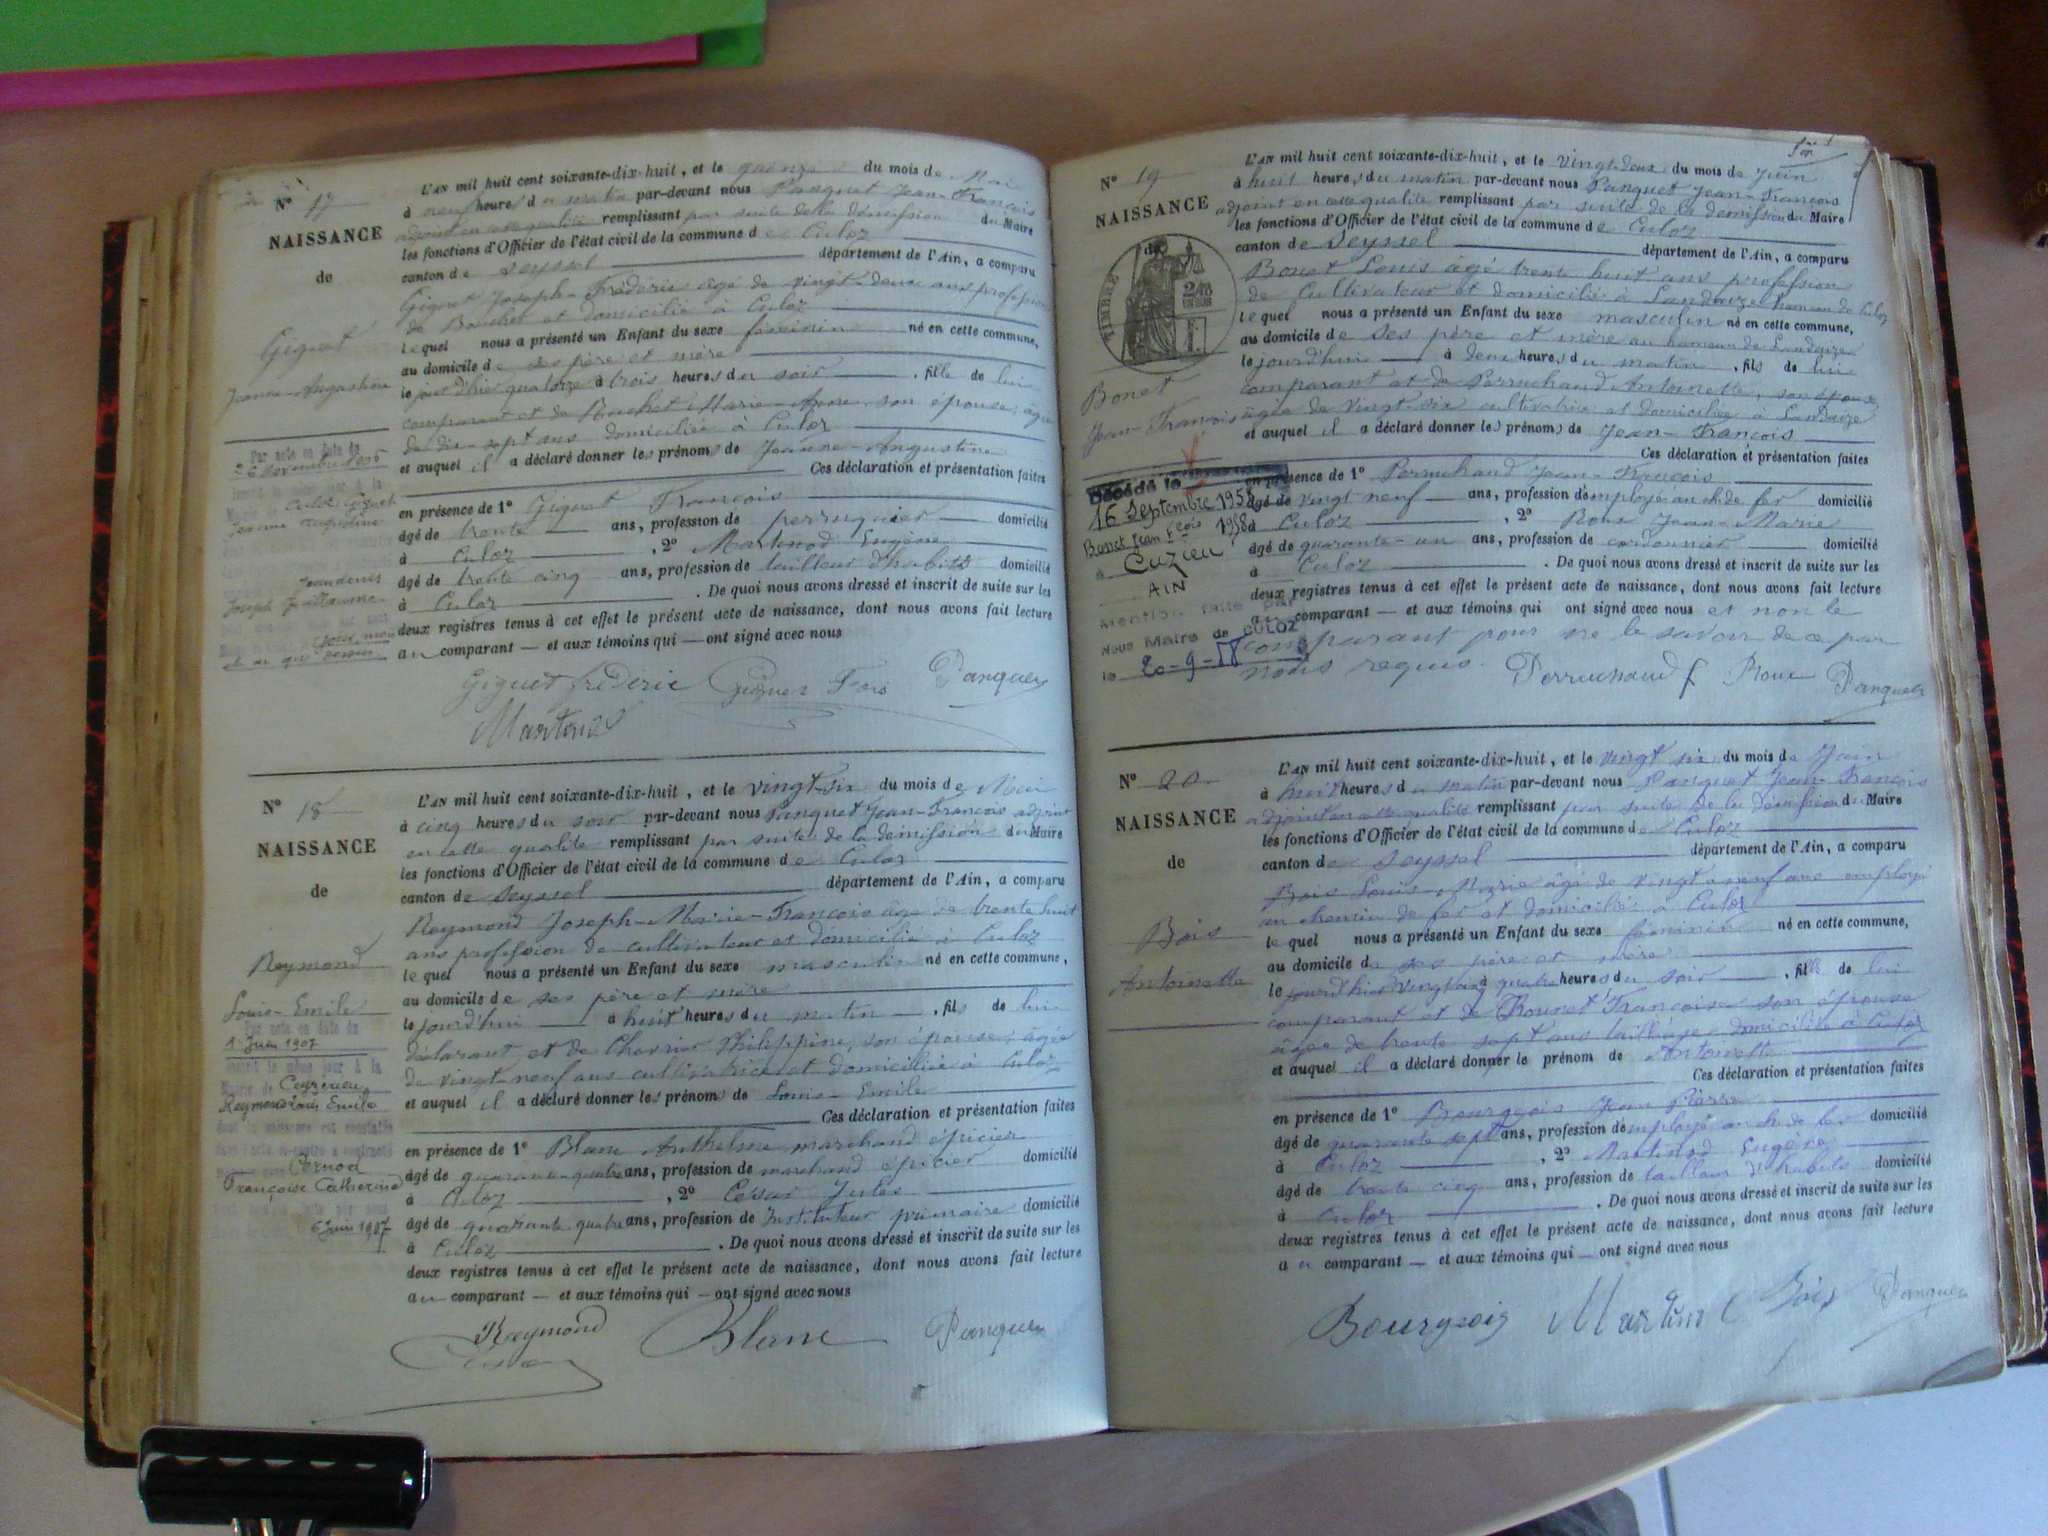 Nº 17
NAISSANCE
de
Giguet
Jeanne-Augustine
Par acte en date du
Culoz Giguet
Jeanne Augustine
Joseph Guillaume
L'AN mil huit cent soixante-dix-huit, et le quinze du mois de Mai
à neuf heures du matin par-devant nous Panguet Jean-François
adjoint en cette qualité remplissant par suite de la démission du Maire
les fonctions d'Officier de l'état civil de la commune de Culoz
canton de Seyssel département de l'Ain, a comparu
Giguet Joseph-Frédéric âgé de vingt-deux ans profession
de Boucher et domicilié à Culoz
lequel nous a présenté un Enfant du sexe féminin né en cette commune,
au domicile de ses père et mère
le jour d'hier quatorze à trois heures du soir, fille de lui
comparant et de Bouchet Marie-Anne, son épouse, âgée
de dix-sept ans domiciliée à Culoz
et auquel il a déclaré donner les prénoms de Jeanne-Augustine
Ces déclaration et présentation faites
en présence de 1º Giguet François
âgé de trente ans, profession de perruquier domicilié
à Culoz, 2º Martinod Eugène
âgé de trente cinq ans, profession de tailleur d'habits domicilié
à Culoz. De quoi nous avons dressé et inscrit de suite sur les
deux registres tenus à cet effet le présent acte de naissance, dont nous avons fait lecture
au comparant — et aux témoins qui — ont signé avec nous
Giguet frédéric Giguet Fois Panguet
Martinod
Nº 18
NAISSANCE
de
Reymond
Louis-Emile
Par acte en date du
1 Juin 1907
inscrit le même jour à la
Mairie de Ceyzerieu
Reymond Louis Emile
dont la naissance est constatée
dans l'acte ci-contre a contracté
Pernod
Françoise Catherine
6 Juin 1907
L'AN mil huit cent soixante-dix-huit, et le vingt-six du mois de Mai
à cinq heures du soir par-devant nous Panguet Jean-François adjoint
en cette qualité remplissant par suite de la démission du Maire
les fonctions d'Officier de l'état civil de la commune de Culoz
canton de Seyssel département de l'Ain, a comparu
Reymond Joseph-Marie-François âgé de trente huit
ans profession de cultivateur et domicilié à Culoz
lequel nous a présenté un Enfant du sexe masculin né en cette commune,
au domicile de ses père et mère
le jourd'hui à huit heures du matin, fils de lui
déclarant et de Charrier Philippine, son épouse, âgée
de vingt-neuf ans cultivatrice et domiciliée à Culoz
et auquel il a déclaré donner les prénoms de Louis-Emile
Ces déclaration et présentation faites
en présence de 1º Blanc Anthelme marchand épicier
âgé de quarante-quatre ans, profession de marchand épicier domicilié
à Culoz, 2º César Jules
âgé de quarante quatre ans, profession de Instituteur primaire domicilié
à Culoz. De quoi nous avons dressé et inscrit de suite sur les
deux registres tenus à cet effet le présent acte de naissance, dont nous avons fait lecture
au comparant — et aux témoins qui — ont signé avec nous
Reymond Blanc Panguet
Nº 19
NAISSANCE
de
TIMBRE
Bonet
Jean-François
Décédé le
16 Septembre 1958
Bonet Jean Fcois 1958
à Cuzieu
AIN
Mention faite par
Nous Maire de CULOZ
le 20-9-58
L'AN mil huit cent soixante-dix-huit, et le vingt-deux du mois de Juin
à huit heures du matin par-devant nous Panguet Jean-François
adjoint en cette qualité remplissant par suite de la démission du Maire
les fonctions d'Officier de l'état civil de la commune de Culoz
canton de Seyssel département de l'Ain, a comparu
Bonet Louis âgé trente huit ans profession
de Cultivateur et domicilié à Landaize hameau de Culoz
lequel nous a présenté un Enfant du sexe masculin né en cette commune,
au domicile de ses père et mère au hameau de Landaize
le jourd'hui à deux heures du matin, fils de lui
comparant et de Perruchaud Antoinette, son épouse
âgée de vingt-six cultivatrice et domiciliée à Landaize
et auquel il a déclaré donner les prénoms de Jean-François
Ces déclaration et présentation faites
en présence de 1º Perruchaud Jean-François
âgé de vingt neuf ans, profession d'employé au ch. de fer domicilié
à Culoz, 2º Roux Jean-Marie
âgé de quarante-un ans, profession de cordonnier domicilié
à Culoz. De quoi nous avons dressé et inscrit de suite sur les
deux registres tenus à cet effet le présent acte de naissance, dont nous avons fait lecture
au comparant — et aux témoins qui ont signé avec nous et non le
comparant pour ne le savoir de ce par
nous requis. Perruchaud f Roux Panguet
Nº 20
NAISSANCE
de
Bois
Antoinette
L'AN mil huit cent soixante-dix-huit, et le vingt six du mois de Juin
à huit heures du matin par-devant nous Panguet Jean-François
adjoint en cette qualité remplissant par suite de la démission du Maire
les fonctions d'Officier de l'état civil de la commune de Culoz
canton de Seyssel département de l'Ain, a comparu
Bois Louis-Marie âgé de vingt-neuf ans employé
au chemin de fer et domicilié à Culoz
lequel nous a présenté un Enfant du sexe féminin né en cette commune,
au domicile de ses père et mère
le jour d'hier vingt cinq à quatre heures du soir, fille de lui
comparant et de Françoise son épouse
âgée de trente sept ans tailleuse domiciliée à Culoz
et auquel il a déclaré donner le prénom de Antoinette
Ces déclaration et présentation faites
en présence de 1º Bourgeois Jean Pierre
âgé de quarante sept ans, profession d'employé au ch. de fer domicilié
à Culoz, 2º Martinod Eugène
âgé de trente cinq ans, profession de tailleur d'habits domicilié
à Culoz. De quoi nous avons dressé et inscrit de suite sur les
deux registres tenus à cet effet le présent acte de naissance, dont nous avons fait lecture
au comparant — et aux témoins qui — ont signé avec nous
Bourgeois Martinod Bois Panguet